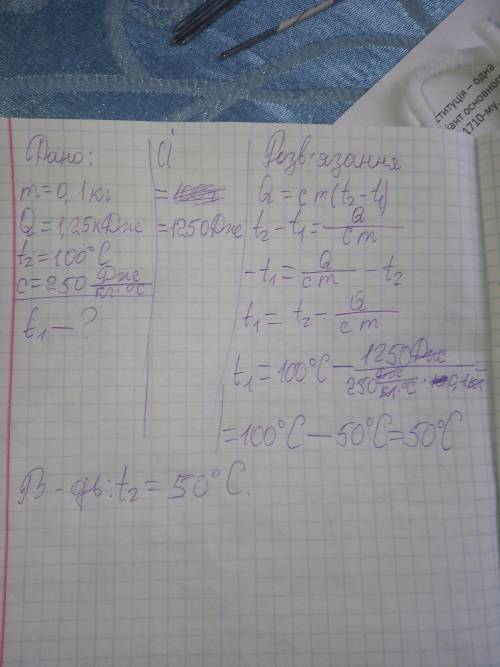 ституція – одна
іант основног
1710-му
Дано:
m=0,1кг
Q=1,25кДж
t₂=100°C
c=250 Дж/кг·°C
t₁ — ?
СІ
=
=1250Дж
Розв'язання
Q=cm(t₂-t₁)
t₂-t₁=Q/cm
-t₁=Q/cm-t₂
t₁=t₂-Q/cm
t₁=100°C-1250Дж/250Дж/кг·°C·0,1кг=
=100°C-50°C=50°C
В-дь: t₂=50°C.